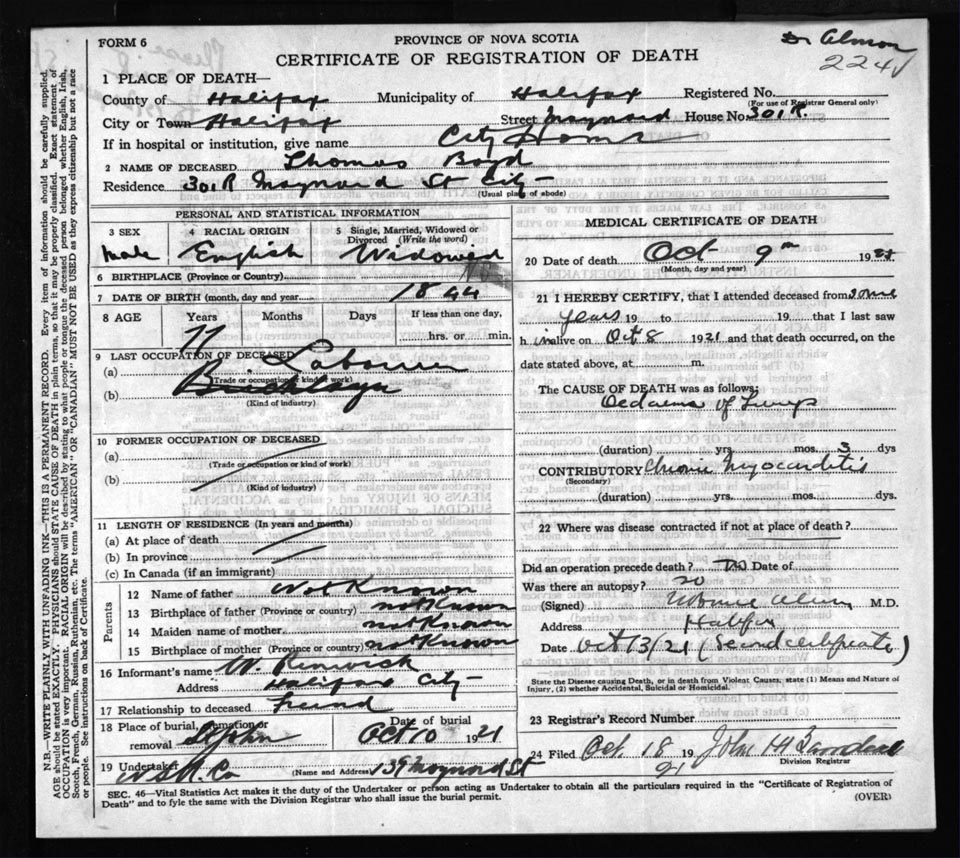 FORM 6
PROVINCE OF NOVA SCOTIA
CERTIFICATE OF REGISTRATION OF DEATH
Dr Almon
224
1 PLACE OF DEATH—
County of Halifax Municipality of Halifax Registered No.
(For use of Registrar General only)
City or Town Halifax Street Maynard House No. 301 R.
If in hospital or institution, give name City Home
2 NAME OF DECEASED Thomas Boyd
Residence 301 R Maynard St City
(Usual place of abode)
PERSONAL AND STATISTICAL INFORMATION
3 SEX 4 RACIAL ORIGIN 5 Single, Married, Widowed or Divorced (Write the word)
Male English Widowed
6 BIRTHPLACE (Province or Country)
7 DATE OF BIRTH (month, day and year) 1844
8 AGE Years Months Days If less than one day,
77 hrs. or min.
9 LAST OCCUPATION OF DECEASED
(a) Labourer
(Trade or occupation or kind of work)
(b) Bricklayer
(Kind of industry)
10 FORMER OCCUPATION OF DECEASED
(a)
(Trade or occupation or kind of work)
(b)
(Kind of industry)
11 LENGTH OF RESIDENCE (In years and months)
(a) At place of death
(b) In province
(c) In Canada (if an immigrant)
Parents
12 Name of father Not Known
13 Birthplace of father (Province or country) not Known
14 Maiden name of mother not Known
15 Birthplace of mother (Province or country) not Known
16 Informant's name W. Renwick
Address Halifax City
17 Relationship to deceased friend
18 Place of burial, cremation or removal St John Date of burial Oct 10 1921
19 Undertaker N S U. Co
(Name and Address) 139 Maynard St
MEDICAL CERTIFICATE OF DEATH
20 Date of death Oct 9th 1921
(Month, day and year)
21 I HEREBY CERTIFY, that I attended deceased from some
years 19 to 19 that I last saw
h im alive on Oct 8 1921 and that death occurred, on the
date stated above, at m.
The CAUSE OF DEATH was as follows:
Oedaema of Lungs
(duration) yrs. mos. 3 dys
CONTRIBUTORY Chronic Myocarditis
(Secondary)
(duration) yrs. mos. dys.
22 Where was disease contracted if not at place of death?
Did an operation precede death? No Date of
Was there an autopsy? no
(Signed) M.D.
Address Halifax
Date Oct 13/21 (Second certificate)
State the Disease causing Death, or in death from Violent Causes, state (1) Means and Nature of Injury, (2) whether Accidental, Suicidal or Homicidal.
23 Registrar's Record Number
24 Filed Oct. 18 1921 John H
Division Registrar
SEC. 46—Vital Statistics Act makes it the duty of the Undertaker or person acting as Undertaker to obtain all the particulars required in the "Certificate of Registration of
Death" and to fyle the same with the Division Registrar who shall issue the burial permit.
(OVER)
N.B.—WRITE PLAINLY WITH UNFADING INK—THIS IS A PERMANENT RECORD. Every item of information should be carefully supplied.
AGE should be stated EXACTLY. PHYSICIANS should STATE CAUSE OF DEATH in plain terms, so that it may be properly classified. Exact statement of
OCCUPATION is very important. RACIAL ORIGIN will be described by stating to what people or tongue the deceased person belonged whether English, Irish,
Scotch, French, German, Russian, Ruthenian, etc. The terms "AMERICAN" OR "CANADIAN" MUST NOT BE USED as they express citizenship but not a race
or people. See instructions on back of Certificate.